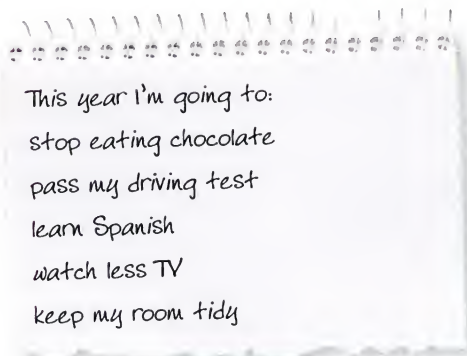 This year I'm going to:
stop eating chocolate
pass my driving test
learn Spanish
watch less TV
keep my room tidy